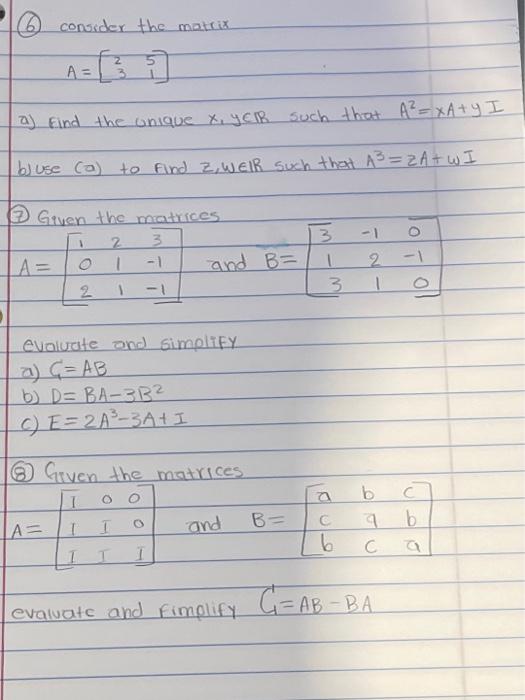 ⑥ consider the matrix
A = [2 5
3 1]
a) Find the unique x, y∈ℝ such that A²=xA+yI
b) use (a) to find z, w∈ℝ such that A³=zA+wI
⑦ Given the matrices
A = [1 2 3
0 1 -1
2 1 -1] and B = [3 -1 0
1 2 -1
3 1 0]
evaluate and simplify
a) G=AB
b) D=BA-3B²
c) E=2A³-3A+I
⑧ Given the matrices
A = [I 0 0
I I 0
I I I] and B = [a b c
c a b
b c a]
evaluate and fimplify G=AB-BA